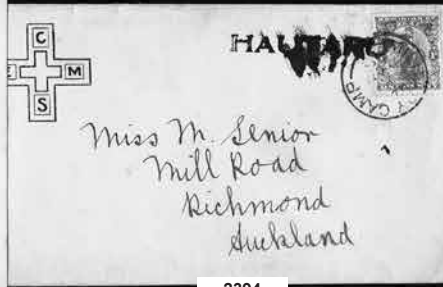 C
E M
S
CAMP
Miss M. Senior
Mill Road
Richmond
Auckland